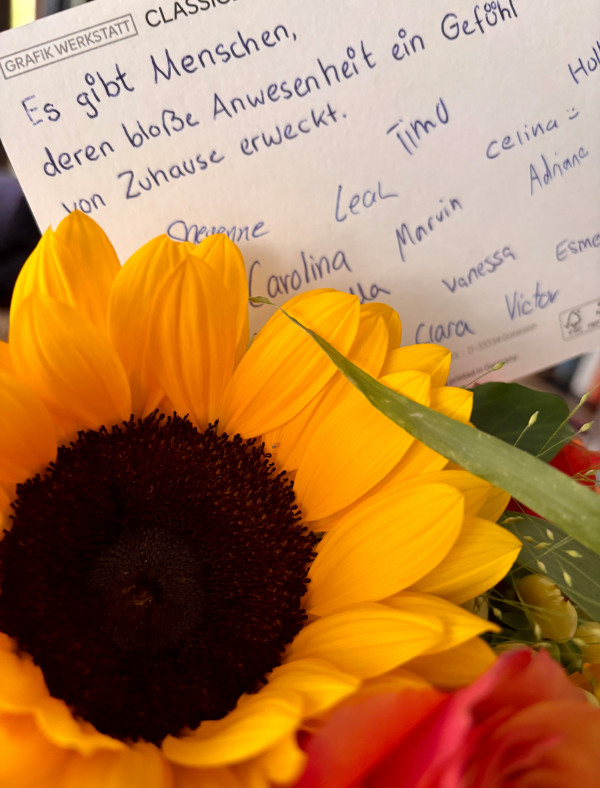 GRAFIK WERKSTATT CLASSIC
Es gibt Menschen,
deren bloße Anwesenheit ein Gefühl
von Zuhause erweckt.
Timo
celina :)
Leah
Marvin
Adriane
Cheyenne
Carolina
Vanessa
Clara
Victor